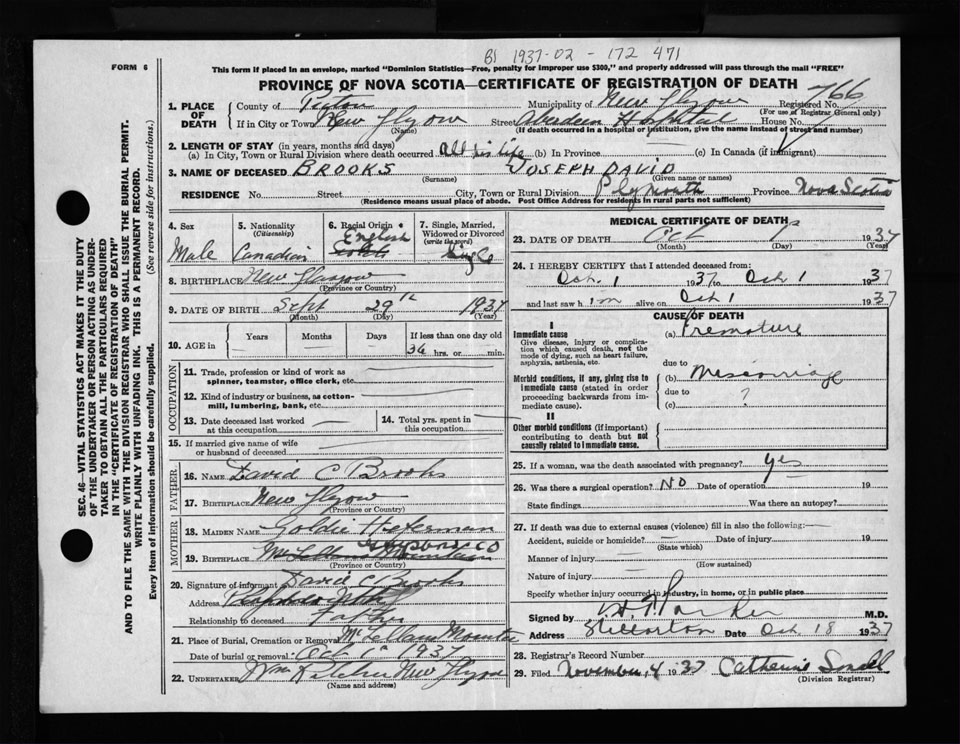 1937-02-172 471
FORM 6
This form if placed in an envelope, marked "Dominion Statistics—Free, penalty for improper use $300," and properly addressed will pass through the mail "FREE"
PROVINCE OF NOVA SCOTIA—CERTIFICATE OF REGISTRATION OF DEATH
1. PLACE OF DEATH
County of Pictou Municipality of New Glasgow Registered No. 766
(For use of Registrar General only)
If in City or Town New Glasgow Street Aberdeen Hospital House No.
(Name) (If death occurred in a hospital or institution, give the name instead of street and number)
2. LENGTH OF STAY (in years, months and days)
(a) In City, Town or Rural Division where death occurred all his life (b) In Province (c) In Canada (if immigrant)
3. NAME OF DECEASED BROOKS JOSEPH DAVID
(Surname) (Given name or names)
RESIDENCE No. Street City, Town or Rural Division Plymouth Province Nova Scotia
(Residence means usual place of abode. Post Office Address for residents in rural parts not sufficient)
4. Sex
Male
5. Nationality
(Citizenship)
Canadian
6. Racial Origin
English
7. Single, Married, Widowed or Divorced
(write the word)
Single
8. BIRTHPLACE New Glasgow
(Province or Country)
9. DATE OF BIRTH Sept 29th 1937
(Month) (Day) (Year)
10. AGE in
Years Months Days If less than one day old
36 hrs. or min.
OCCUPATION
11. Trade, profession or kind of work as spinner, teamster, office clerk, etc.
12. Kind of industry or business, as cotton-mill, lumbering, bank, etc.
13. Date deceased last worked at this occupation
14. Total yrs. spent in this occupation
15. If married give name of wife or husband of deceased
FATHER
16. NAME David C Brooks
17. BIRTHPLACE New Glasgow
(Province or Country)
MOTHER
18. MAIDEN NAME Goldie
19. BIRTHPLACE
(Province or Country)
20. Signature of informant David C Brooks
Address
Relationship to deceased Father
21. Place of Burial, Cremation or Removal McLellans Mountain
Date of burial or removal Oct 1937
22. UNDERTAKER New Glasgow
(Name and address)
MEDICAL CERTIFICATE OF DEATH
23. DATE OF DEATH Oct 1937
(Month) (Day) (Year)
24. I HEREBY CERTIFY that I attended deceased from:
Oct. 1 1937 to Oct 1 1937
and last saw him alive on Oct 1 1937
CAUSE OF DEATH
I
Immediate cause
Give disease, injury or complication which caused death, not the mode of dying, such as heart failure, asphyxia, asthenia, etc.
(a) Premature
due to
Morbid conditions, if any, giving rise to immediate cause (stated in order proceeding backwards from immediate cause).
(b) Miscarriage
due to
(c) ?
II
Other morbid conditions (if important) contributing to death but not causally related to immediate cause.
25. If a woman, was the death associated with pregnancy? Yes
26. Was there a surgical operation? NO Date of operation 19
State findings Was there an autopsy?
27. If death was due to external causes (violence) fill in also the following:
Accident, suicide or homicide? Date of injury 19
(State which)
Manner of injury
(How sustained)
Nature of injury
Specify whether injury occurred in industry, in home, or in public place
Signed by Parker M.D.
Address Stellarton Date Oct 18 1937
28. Registrar's Record Number
29. Filed November, 4 1937 Catherine
(Division Registrar)
SEC. 46—VITAL STATISTICS ACT MAKES IT THE DUTY
OF THE UNDERTAKER OR PERSON ACTING AS UNDER-
TAKER TO OBTAIN ALL THE PARTICULARS REQUIRED
IN THE "CERTIFICATE OF REGISTRATION OF DEATH"
AND TO FILE THE SAME WITH THE DIVISION REGISTRAR WHO SHALL ISSUE THE BURIAL PERMIT.
WRITE PLAINLY WITH UNFADING INK. THIS IS A PERMANENT RECORD.
Every item of information should be carefully supplied. (See reverse side for instructions.)